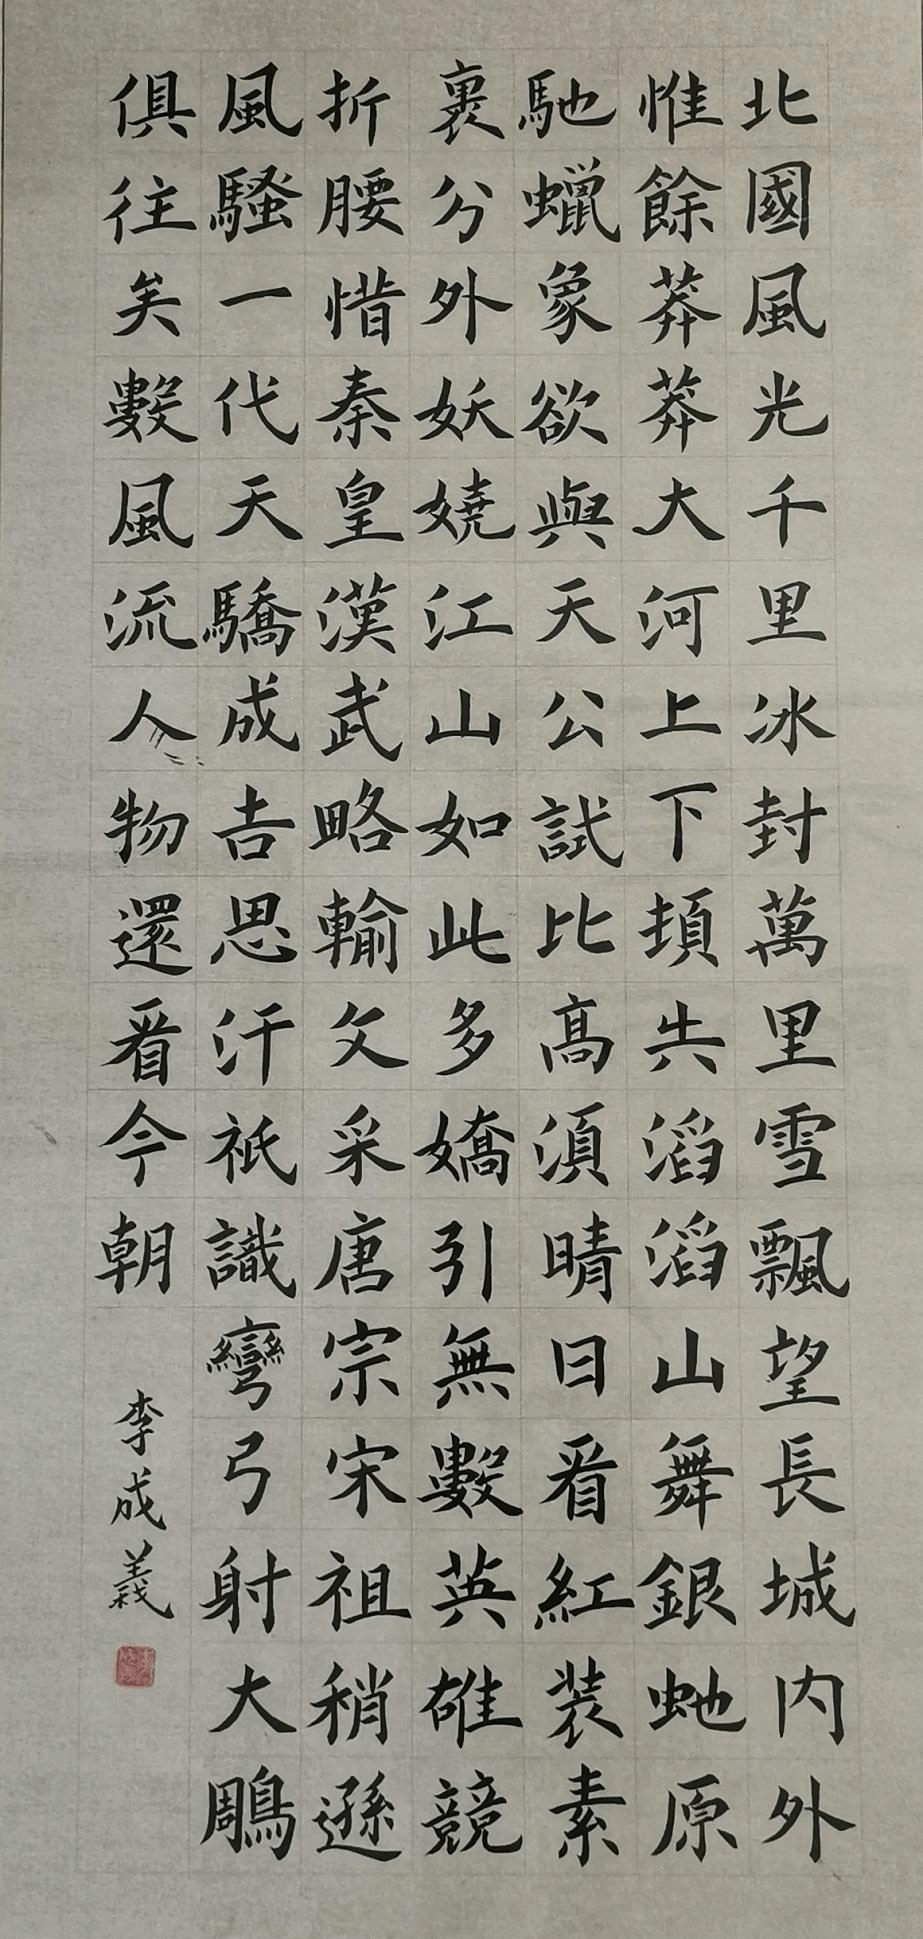 北國風光千里冰封萬里雪飄望長城内外
惟餘莽莽大河上下頓失滔滔山舞銀虵原
馳蠟象欲與天公試比髙湏晴日看紅装素
裹分外妖嬈江山如此多嬌引無數英雄競
折腰惜秦皇漢武略輸文采唐宗宋祖稍遜
風騷一代天驕成吉思汗祇識彎弓射大鵰
俱往矣數風流人物還看今朝
李成義